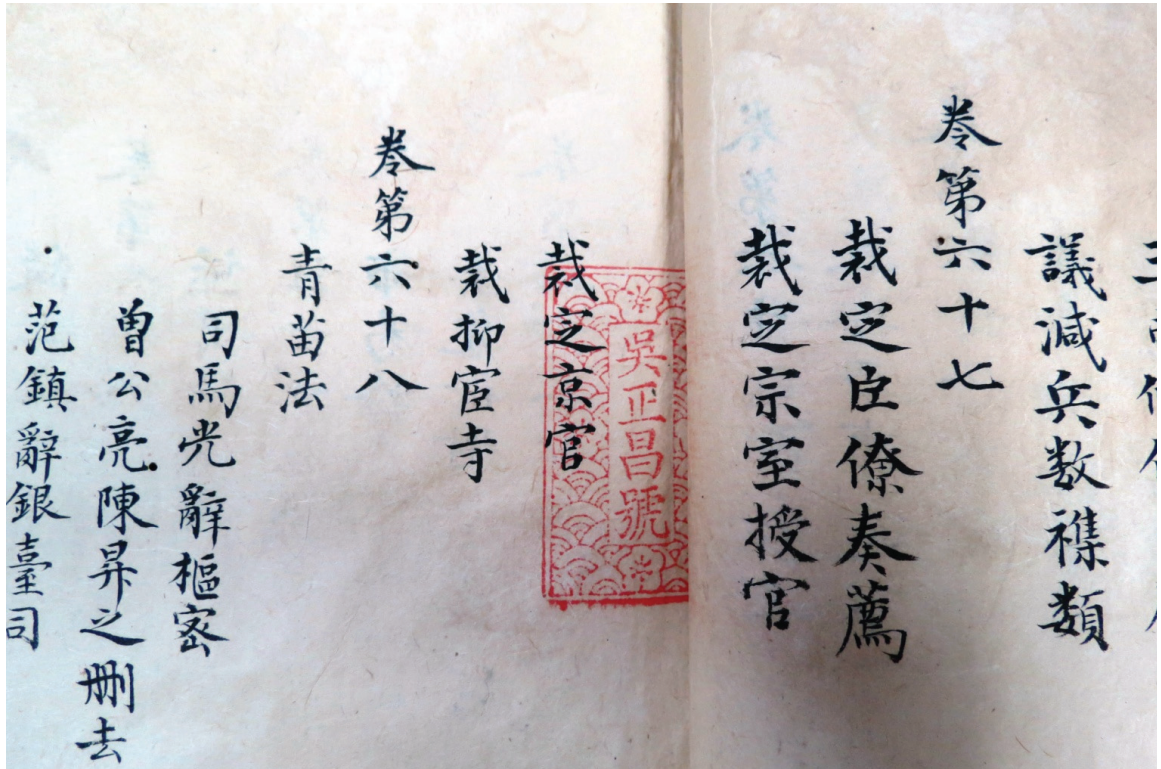 議減兵数襍類
卷第六十七
裁定臣僚奏薦
裁定宗室授官
裁定京官
吳正昌號
裁抑宦寺
卷第六十八
青苗法
司馬光辭樞宻
曽公亮陳昇之删去
范鎮辭銀臺司